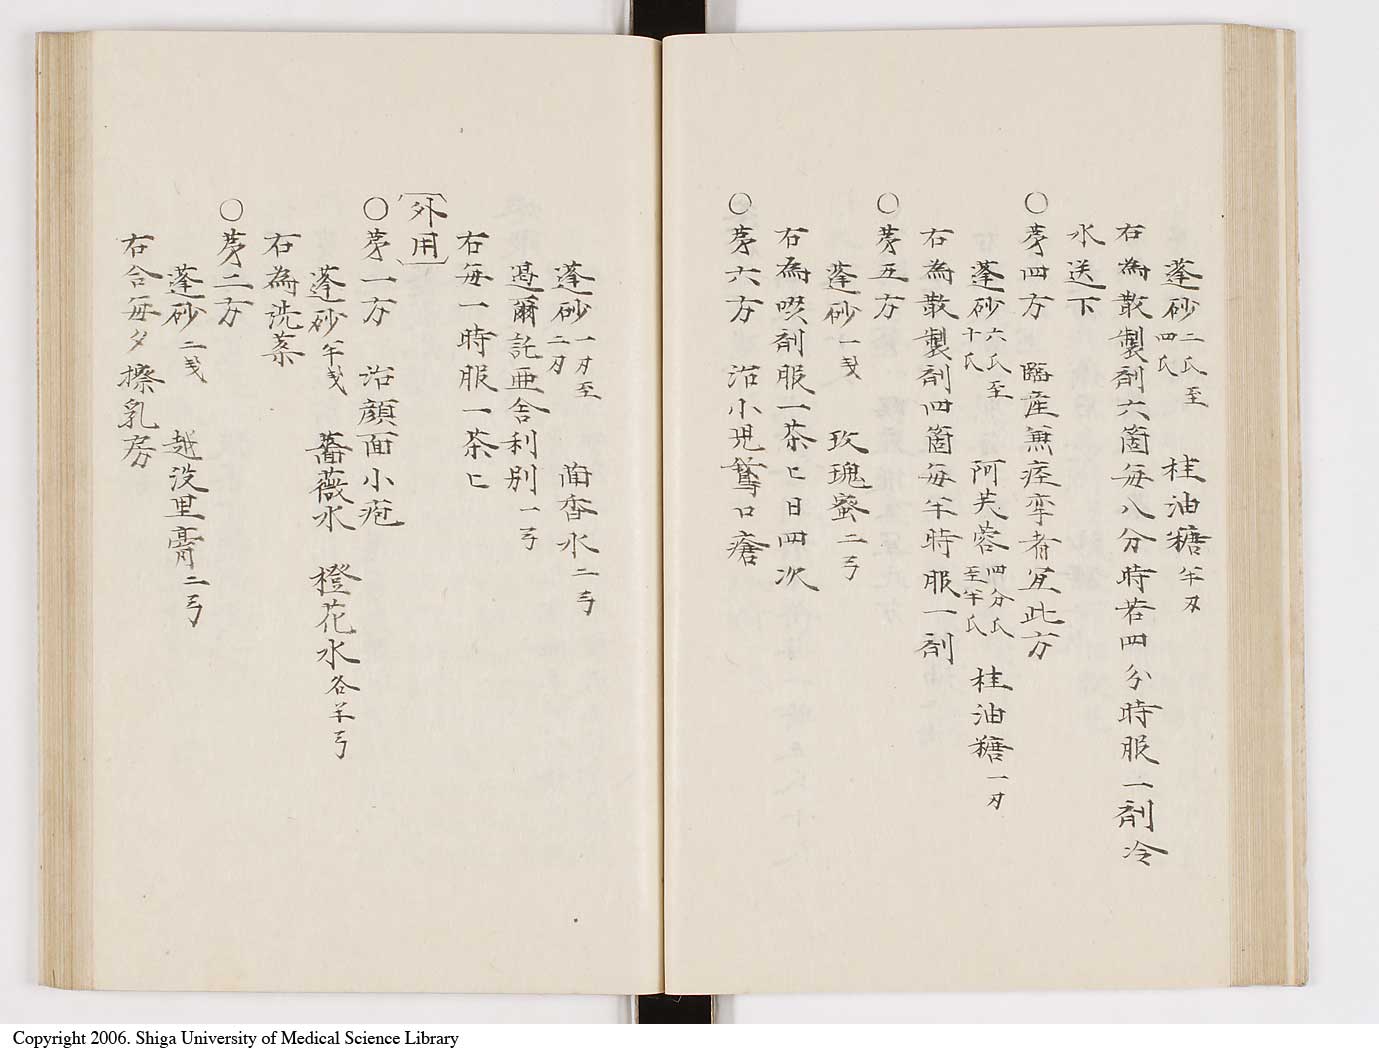 蓬砂二氏至四氏 桂油糖半刄
右為散製剤六箇毎八分時若四分時服一剤冷
水送下
○㐧四方 臨産無痙挛者宜此方
蓬砂六氏至十氏 阿芙蓉四分氏至半氏 桂油糖一刄
右為散製剤四箇毎半時服一剤
○㐧五方
蓬砂一戔 玫瑰蜜二弓
右為喫剤服一茶匕日四次
○㐧六方 治小児鵞口瘡
蓬砂一刄至二刄 茴香水二弓
葛爾託亜舎利別一弓
右毎一時服一茶匕
外用
○㐧一方 治顔面小疱
蓬砂半戔 薔薇水 橙花水各半弓
右為洗薬
○㐧二方
蓬砂二戔 越没里膏二弓
右合毎夕擦乳房
Copyright 2006. Shiga University of Medical Science Library